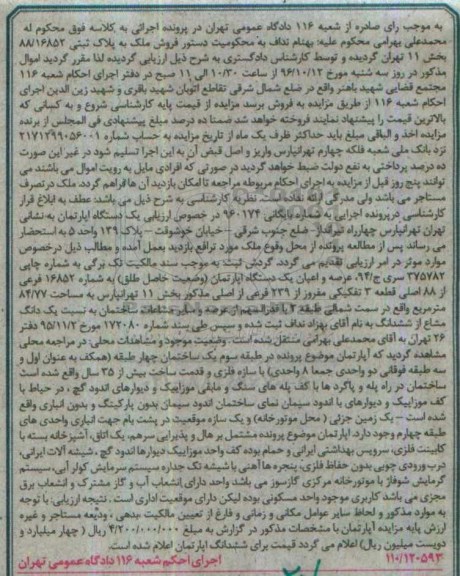 به موجب رای صادره از شعبه ۱۱۶ دادگاه عمومی تهران در پرونده اجرائی به کلاسه فوق محکوم له
محمدعلی بهرامی محکوم علیه: بهنام نداف به محکومیت دستور فروش ملک به پلاک ثبتی ۸۸/۱۶۸۵۲
بخش ۱۱ تهران گردیده و توسط کارشناس دادگستری به شرح ذیل ارزیابی گردیده لذا مقرر گردید اموال
مذکور در روز سه شنبه مورخ ۹۶/۱۰/۱۲ از ساعت ۱۰/۳۰ الی ۱۱ صبح در دفتر اجرای احکام شعبه ۱۱۶
مجتمع قضایی شهید باهنر واقع در ضلع شمال شرقی تقاطع اتوبان شهید باقری و شهید زین الدین اجرای
احکام شعبه ۱۱۶ از طریق مزایده به فروش برسد مزایده از قیمت پایه کارشناسی شروع و به کسانی که
بالاترین قیمت را پیشنهاد نمایند فروخته خواهد شد ضمنا ده درصد مبلغ پیشنهادی فی المجلس از برنده
مزایده اخذ و الباقی مبلغ باید حداکثر ظرف یک ماه از تاریخ مزایده به حساب شماره ۲۱۷۱۲۹۹۰۵۶۰۰۱
نزد بانک ملی شعبه فلکه چهارم تهرانپارس واریز و اصل قبض آن به این اجرا تسلیم شود در غیر این صورت
ده درصد پرداختی به نفع دولت ضبط خواهد گردید در صورتی که افرادی مایل به رویت اموال می باشند می
توانند پنج روز قبل از مزایده به اجرای احکام مربوطه مراجعه تا امکان بازدید آن ها فراهم گردد. ملک در تصرف
مستاجر می باشد ولی مدرکی ارائه نداده است. نظریه کارشناسی به شرح ذیل می باشد: عطف به ابلاغ قرار
کارشناسی در پرونده اجرایی به شماره بایگانی ۹۶۰۱۷۴ در خصوص ارزیابی یک دستگاه آپارتمان به نشانی
تهران تهرانپارس چهارراه تیرانداز - ضلع جنوب شرقی - خیابان خوشوقت - پلاک ۱۳۹ واحد ۵ به استحضار
می رساند پس از مطالعه پرونده از محل وقوع ملک مورد ترافع بازدید بعمل آمده و مطالب ذیل در خصوص
موارد موثر در امر ارزیابی تقدیم می گردد. گردش ثبت: به موجب سند مالکیت تک برگی به شماره چاپی
۳۷۵۷۸۲ سری ج/۹۴، عرصه و اعیان یک دستگاه آپارتمان (وضعیت خاصل طلق) به شماره ۱۶۸۵۲ فرعی
از ۸۸ اصلی قطعه ۳ تفکیکی مفروز از ۲۳۹ فرعی از اصلی مذکور بخش ۱۱ تهرانپارس به مساحت ۸۴/۷۷
مترمربع واقع در سمت شمالی طبقه ۲ با قدرالسهم از عرصه و سایر مشاعات ساختمان به نسبت یک دانگ
مشاع از ششدانگ به نام آقای بهزاد نداف ثبت شده و سپس طی سند شماره ۱۷۲۰۸۰ مورخ ۹۵/۱۱/۲ دفتر
۲۶ تهران به آقای محمدعلی بهرامی منتقل شده است. وضعیت موجود و مشاهدات محلی: در مراجعه محلی
مشاهده گردید که آپارتمان موضوع پرونده در طبقه سوم یک ساختمان چهار طبقه (همکف به عنوان اول و
سه طبقه فوقانی دو واحدی جمعا ۸ واحدی) با سازه فلزی و قدمت ساخت بیش از ۳۵ سال واقع شده است
ساختمان در راه پله و پاگرد ها با کف پله های سنگ و مابقی موزاییک و دیوارهای اندود گچ، در حیاط با
کف موزاییک و دیوارهای با اندود سیمان نمای ساختمان اندود سیمان بدون پارکینگ و بدون انباری واقع
شده است - یک زمین جزئی (محل موتورخانه) و یک سازه موقعیت در پشت بام جهت انباری واحدی های
طبقه چهارم وجود دارد. اپارتمان موضوع پرونده مشتمل بر هال و پذیرایی سرهم، یک اتاق، آشپزخانه بسته با
کابینت فلزی، سرویس بهداشتی ایرانی و حمام بوده کف واحد موزاییک دیوارها اندود گچ، شیشه آلات ایرانی،
درب ورودی چوبی بدون حفاظ فلزی، پنجره ها آهنی با شیشه تک جداره سیستم سرمایش کولر آبی، سیستم
گرمایش شوفاژ با موتورخانه مرکزی گازسوز می باشد واحد دارای انشعاب آب و گاز مشترک و انشعاب برق
مجزی می باشد کاربری موجود واحد مسکونی بوده لیکن دارای موقعیت اداری است. نتیجه ارزیابی: با توجه
به موارد مذکور و لحاظ سایر عوامل مکانی و زمانی و فارغ از تعیین مالکیت بدهی، ودیعه مستاجر و غیره
ارزش پایه مزایده آپارتمان با مشخصات مذکور در گزارش به مبلغ ۴/۲۰۰/۰۰۰/۰۰۰ ریال (چهار میلیارد و
دویست میلیون ریال) اعلام می گردد قیمت برای ششدانگ آپارتمان اعلام شده است.
۱۱۰/۱۲۰۵۹۳ اجرای احکم شعبه ۱۱۶ دادگاه عمومی تهران